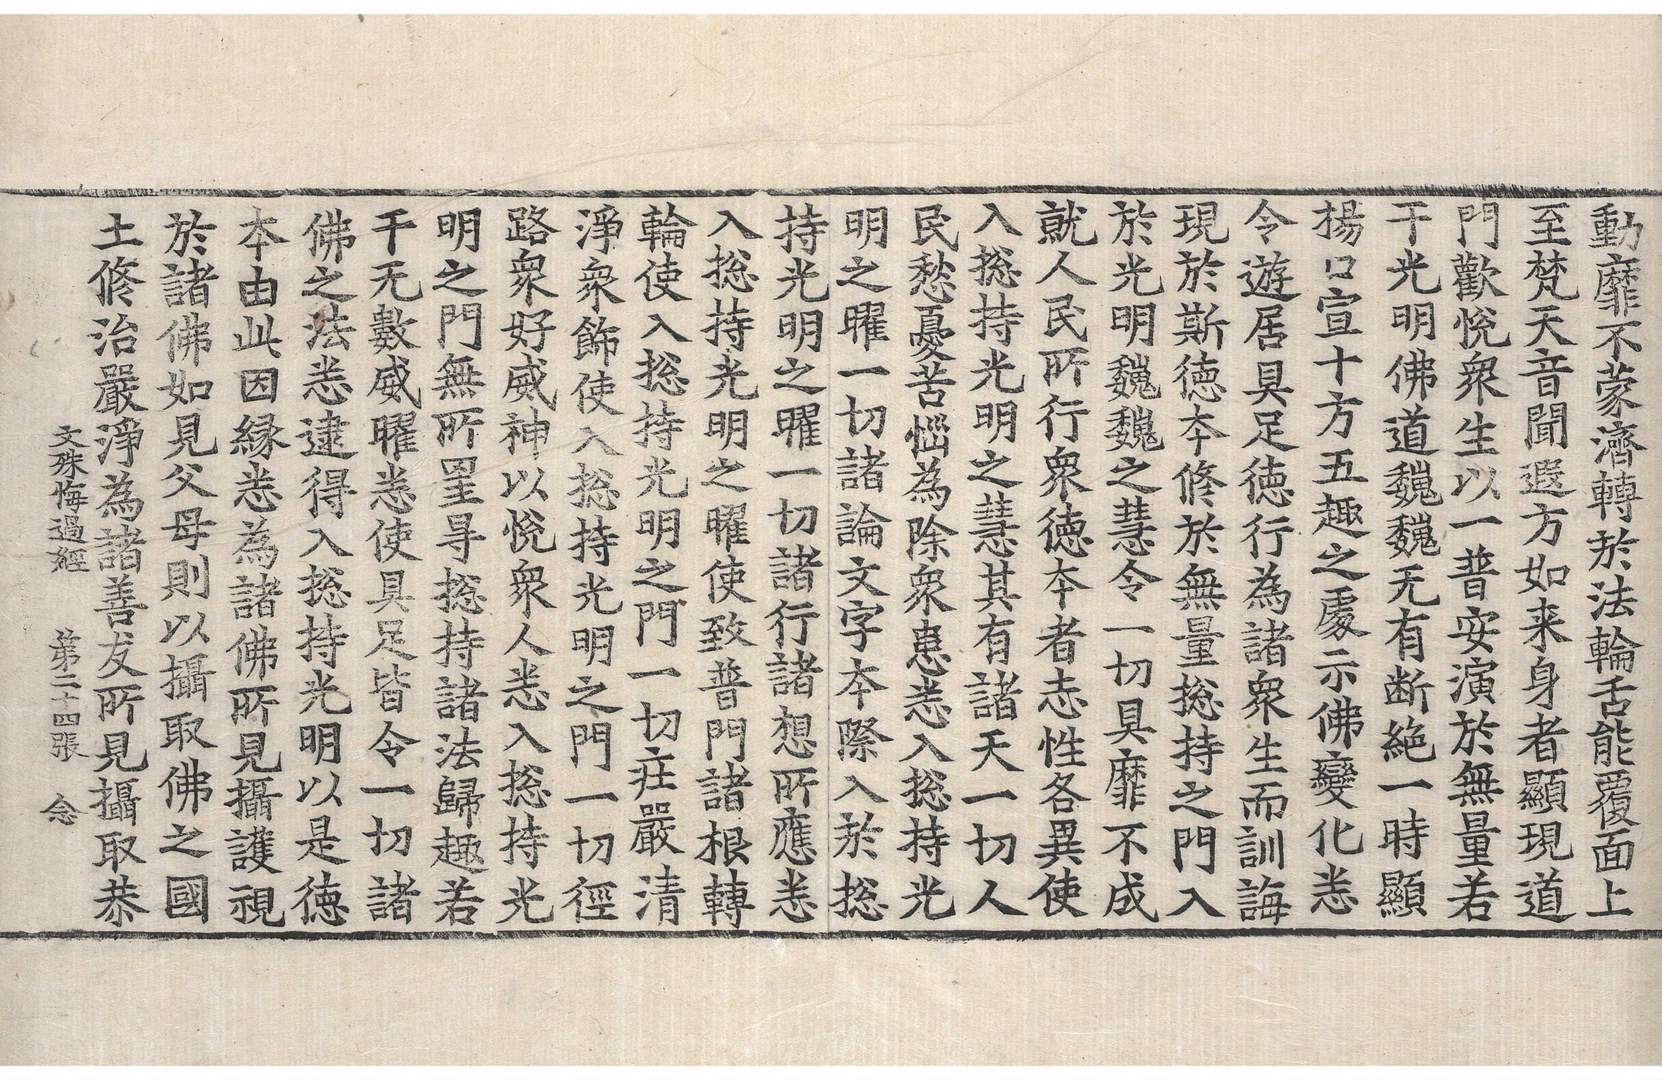 動靡不蒙濟轉於法輪舌能覆面上
至梵天音聞遐方如来身者顯現道
門歡悅衆生以一普安演於無量若
干光明佛道巍巍无有断絶一時顯
揚口宣十方五趣之處示佛變化悉
令遊居具足徳行為諸衆生而訓誨
現於斯徳本修於無量捴持之門入
於光明巍巍之慧令一切具靡不成
就人民所行衆徳本者志性各異使
入捴持光明之慧其有諸天一切人
民愁憂苦惱為除衆患悉入捴持光
明之曜一切諸論文字本際入於捴
持光明之曜一切諸行諸想所應悉
入捴持光明之曜使致普門諸根轉
輪使入捴持光明之門一切莊嚴清
淨衆飾使入捴持光明之門一切徑
路衆好威神以悅衆人悉入捴持光
明之門無所罣㝵捴持諸法歸趣若
干无數威曜悉使具足皆令一切諸
佛之法悉逮得入捴持光明以是徳
本由此因縁悉為諸佛所見攝護視
於諸佛如見父母則以攝取佛之國
土修治嚴淨為諸善友所見攝取恭
文殊悔過經 第二十四張 念